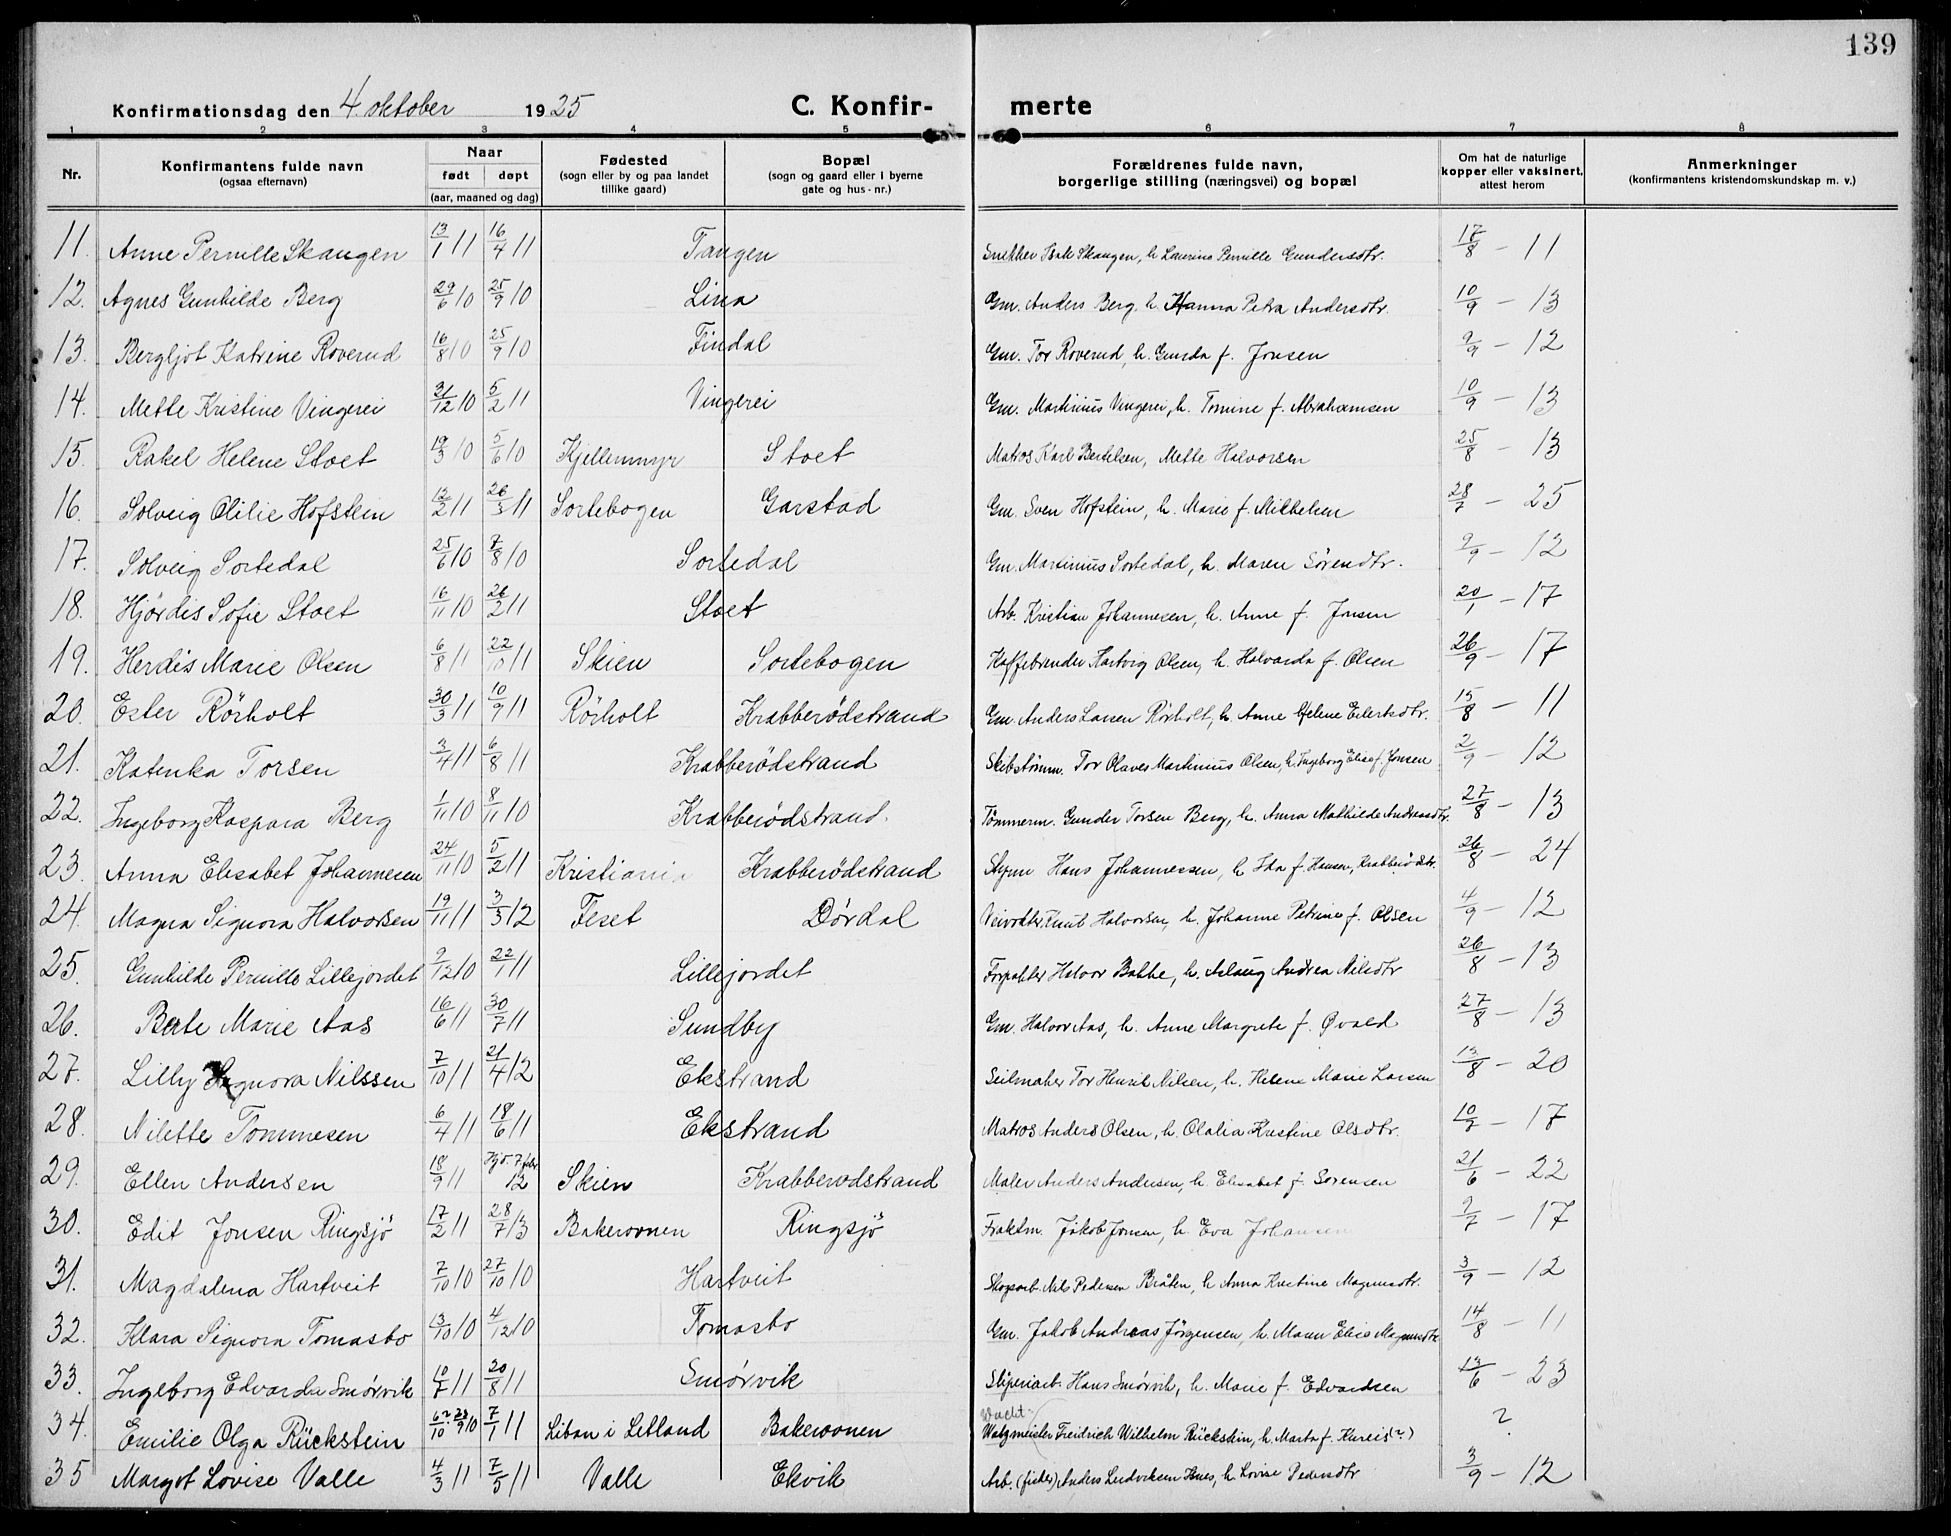 139
Konfirmationsdag den 4. oktober 1925 C. Konfir- merte
1 2 3 4 5 6 7 8
Nr. Konfirmantens fulde navn (ogsaa efternavn) Naar født døpt (aar, maaned og dag) Fødested (sogn eller by og paa landet tillike gaard) Bopæl (sogn og gaard eller i byerne gate og hus-nr.) Forældrenes fulde navn, borgerlige stilling (næringsvei) og bopæl Om hat de naturlige kopper eller vaksinert, attest herom Anmerkninger (konfirmantens kristendomskundskap m. v.)
11. Anne Pernille Skaugen 13/1 11 16/4 11 Tangen Snekker Isak Skaugen, h. Laurine Pernille Gundersdtr. 17/8 - 11
12. Agnes Gunhilde Berg 29/6 10 25/9 10 Lina Gm. Anders Berg, h. Hanna Petra Andersdtr. 10/9 - 13
13. Bergljot Katrine Roverud 16/8 10 25/9 10 Findal Gm. Tor Roverud, h. Gunda f. Jonsen 9/9 - 12
14. Mette Kristine Vingerei 31/12 10 5/2 11 Vingerei Gm. Martinius Vingerei, h. Tomine f. Abrahamsen 10/9 - 13
15. Rakel Helene Stoet 19/3 10 5/6 10 Kjellemyr Stoet Matros Karl Bertelsen, Mette Halvorsen 25/8 - 13
16. Solveig Otilie Hofstein 12/2 11 26/3 11 Sortebogen Garstad Gm. Sven Hofstein, h. Marie f. Mikkelsen 28/7 - 25
17. Solveig Sortedal 25/6 10 7/8 10 Sortedal Gm. Martinius Sortedal, h. Maren Sörendtr. 9/9 - 12
18. Hjørdis Sofie Stoet 16/11 10 26/2 11 Stoet Arb. Kristian Johannesen, h. Anne f. Jonsen 20/1 - 17
19. Herdis Marie Olsen 6/8 11 22/10 11 Skien Sortebogen Kaffebrender Hartvig Olsen, h. Halvarda f. Olsen 26/9 - 17
20. Ester Rörholt 30/3 11 10/9 11 Rörholt Krabberödstrand Gm. Anders Larsen Rörholt, h. Anne Helene Eilertsdtr. 15/8 - 11
21. Katinka Torsen 3/4 11 6/8 11 Krabberödstrand Skibstømm. Tor Olaves Martinius Olsen, h. Ingeborg Elise f. Jonsen 2/9 - 12
22. Ingeborg Kaspara Berg 1/11 10 8/11 10 Krabberödstrand. Tömmerm. Gunder Torsen Berg, h. Anna Mathilde Andreasdtr. 27/8 - 13
23. Anna Elisabet Johannesen 24/11 10 5/2 11 Kristiania Krabberödstrand Styrm Hans Johannessen, h Ida f. Hansen, Krabberödstr. 26/8 - 24
24. Magna Signora Halvorsen 19/11 11 3/3 12 Feset Dørdal Veivokter Knut Halvorsen, h. Johanne Petrine f. Olsen 4/9 - 12
25. Gunhilde Pernille Lillejordet 9/12 10 22/1 11 Lillejordet Forpakter Halvor Bakke, h. Aslaug Andrea Nilsdtr 26/8 - 13
26. Berte Marie Aas 16/6 11 30/7 11 Sundby Gm. Halvor Aas, h. Anne Margrete f. Øvald 27/8 - 13
27. Lilly Signora Nilssen 7/10 11 21/4 12 Ekstrand Seilmaker Tor Henrik Nilsen, h. Helene Marie Larsen 13/8 - 20
28. Nilette Tommesen 6/4 11 18/6 11 Ekstrand Matros Anders Olsen, h. Olalia Kristine Olsdtr. 10/7 - 17
29. Ellen Andersen 18/9 11 Hjd. 7 febr 12 Skien Krabberødstrand Maler Anders Andersen, h. Elisabet f. Sørensen 21/6 - 22
30. Edit Jonsen Ringsjö 17/2 11 28/7 13 Bakerovnen Ringsjö Fraktm. Jakob Jonsen, h Eva Johansen 9/7 - 17
31. Magdalena Hartveit 7/10 10 27/10 10 Hartveit Skogsarb. Nils Pedersen Bråten, h Anna Kristine Magnusdtr. 3/9 - 12
32. Klara Signora Tomasbo 13/10 10 4/12 10 Tomasbo Gm. Jakob Andreas Jörgensen, h. Maren Elise Magnusdtr 14/8 - 11
33. Ingeborg Edvarda Smørvik 10/7 11 20/8 11 Smørvik Sliperiarb. Hans Smørvik, h. Marie f. Edvardsen 13/6 - 23
34. Emilie Olga Rückstein 6/10 ? 23/9 10 7/1 11 Libau i Letland Bakerovnen Wacht- Watzmeister Freidrich Wilhelm Rückstein, h. Marta f. Kureis (?) ?
35 Margot Lovise Valle 4/3 11 7/5 11 Valle Ekvik Arb. (fisker) Anders Ludviksen, h. Lovise Pedersdtr 3/9 - 12